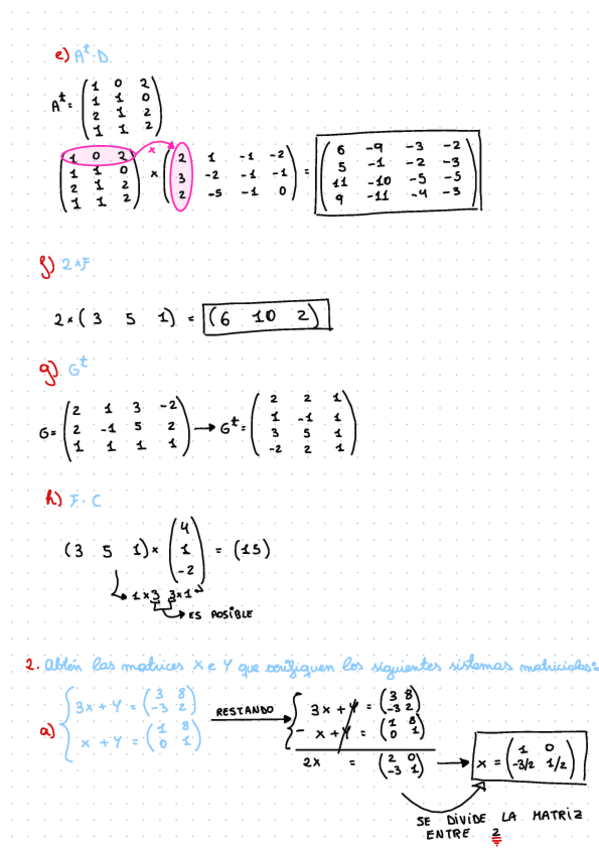 e) A^t·D
A^t = (1 0 2
1 1 0
2 1 2
1 1 2)
(1 0 2
1 1 0
2 1 2
1 1 2) × (2 1 -1 -2
3 -2 -1 -1
2 -5 -1 0) = (6 -9 -3 -2
5 -1 -2 -3
11 -10 -5 -5
9 -11 -4 -3)
×
f) 2×F
2×(3 5 1) = (6 10 2)
g) G^t
G = (2 1 3 -2
2 -1 5 2
1 1 1 1) → G^t = (2 2 1
1 -1 1
3 5 1
-2 2 1)
h) F·C
(3 5 1) × (4
1
-2) = (15)
1×3 3×1
ES POSIBLE
2. Abtén las matrices X e Y que verifiquen los siguientes sistemas matriciales:
a) 3x + Y = (3 8
-3 2)
x + Y = (1 8
0 1)
RESTANDO
3x + Y = (3 8
-3 2)
- x + Y = (1 8
0 1)
2x = (2 0
-3 1) → x = (1 0
-3/2 1/2)
SE DIVIDE LA MATRIZ
ENTRE 2